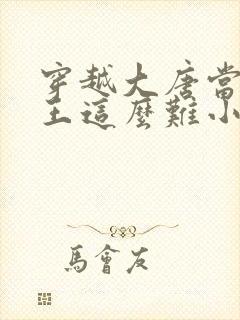 穿越大唐當
王這麼難小
馬會友